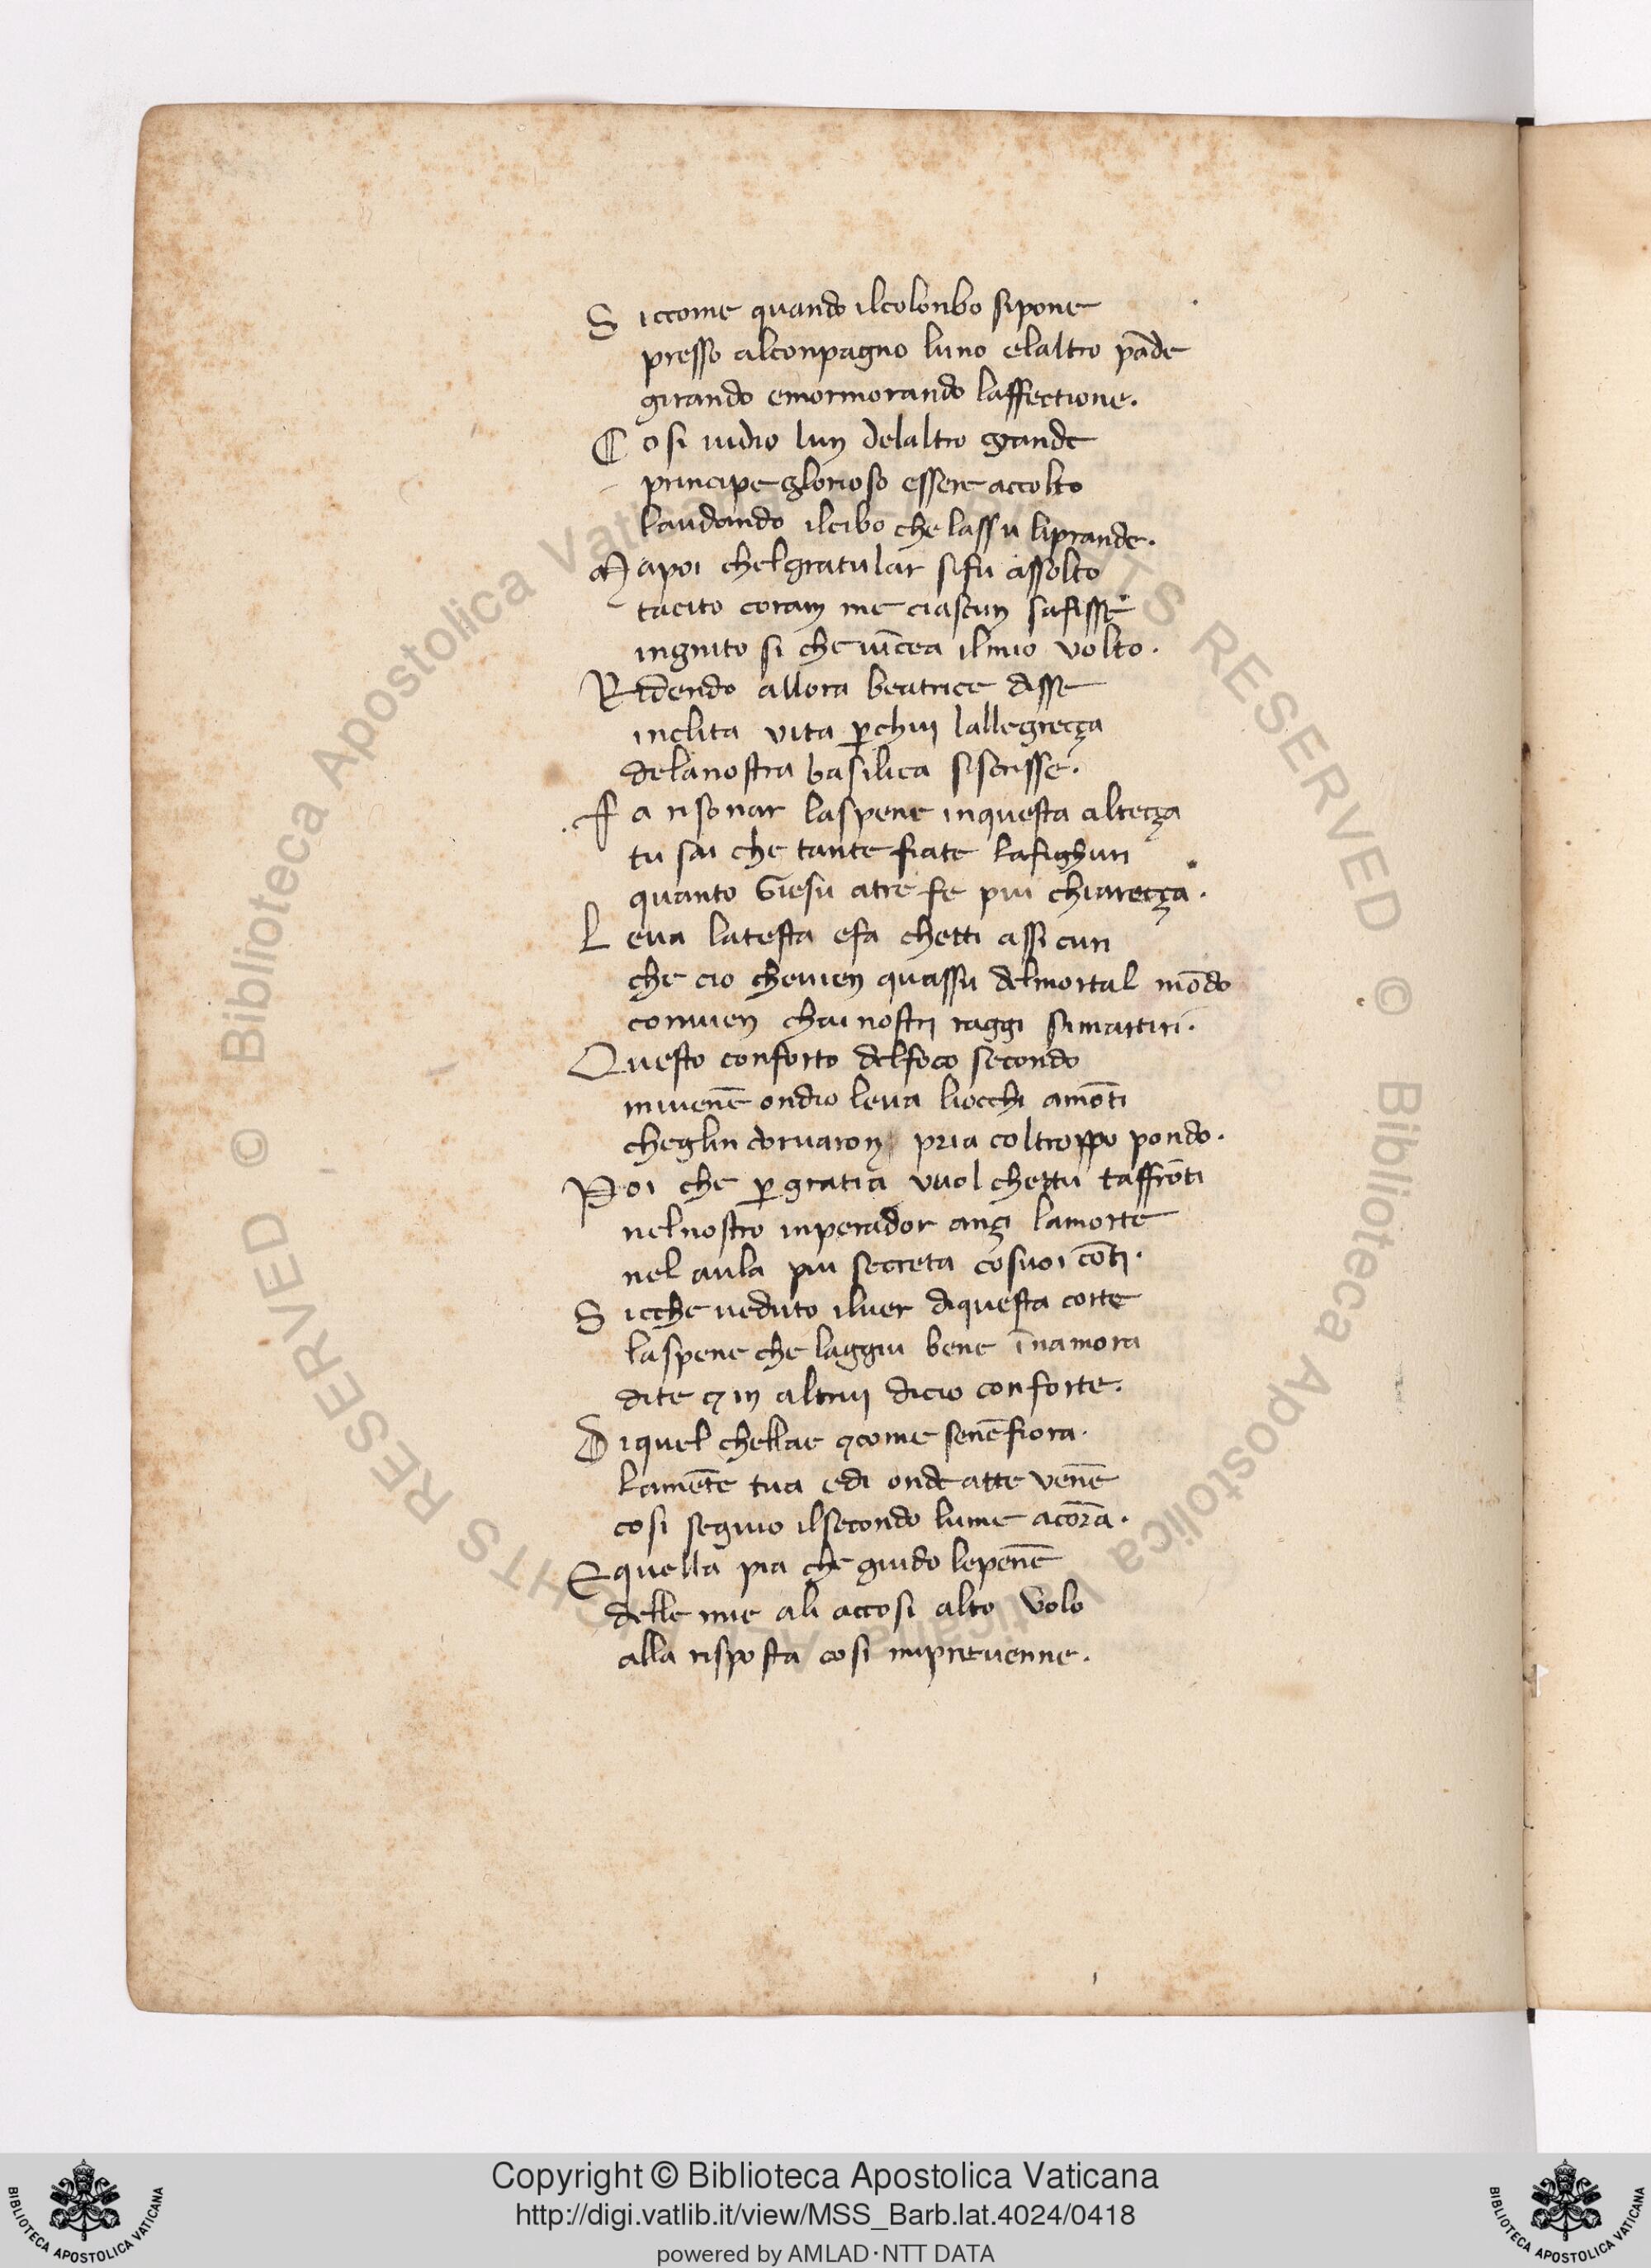 Siccome quando ilcolonbo sipone
presso alconpagno luno elaltro pāde
girando emormorando laffectione.
Cosi uidio lun delaltro grande
principe glorioso essere accolto
laudando ilcibo che lassu liprande.
Mapoi chelgratular sifu assolto
tacito coram me ciascun safisse
ingnito si che uīcea ilmio volto.
Ridendo allora beatrice disse
inclita vita ꝑchui lallegreçça
delanostra basilica siscrisse.
Fa risonar laspene inquesta alteçça
tu sai che tante fiate lafighuri
quanto Giesu atre fe piu chiareçça.
Leua latesta efa chetti assicuri
che cio cheuien quassu delmortal mōdo
conuien chai nostri raggi simartiri.
Questo conforto delfoco secondo
miuenē ondio leua liocchi amōti
cheglin coruaron pria coltroppo pondo.
Poi che ꝑgratia vuol chettu taffrōti
nelnostro inperador ançi lamorte
nel aula piu secreta cosuoi cōti.
Sicche ueduto iluer diquesta corte
laspene che laggiu bene īnamora
dite ⁊ in altrui dicio conforte.
Diquel chellae ⁊come senēfiora.
lamēte tua edi onde atte venē
cosi seguio ilsecondo lume acorā.
Equella pia che guido lepenē
delle mie ali accosi alto volo
alla risposta cosi mipreuenne.
Copyright © Biblioteca Apostolica Vaticana
http://digi.vatlib.it/view/MSS_Barb.lat.4024/0418
powered by AMLAD·NTT DATA
BIBLIOTECA APOSTOLICA VATICANA
BIBLIOTECA APOSTOLICA VATICANA
© Biblioteca Apostolica Vaticana ALL RIGHTS RESERVED © Biblioteca Apostolica Vaticana ALL RIGHTS RESERVED